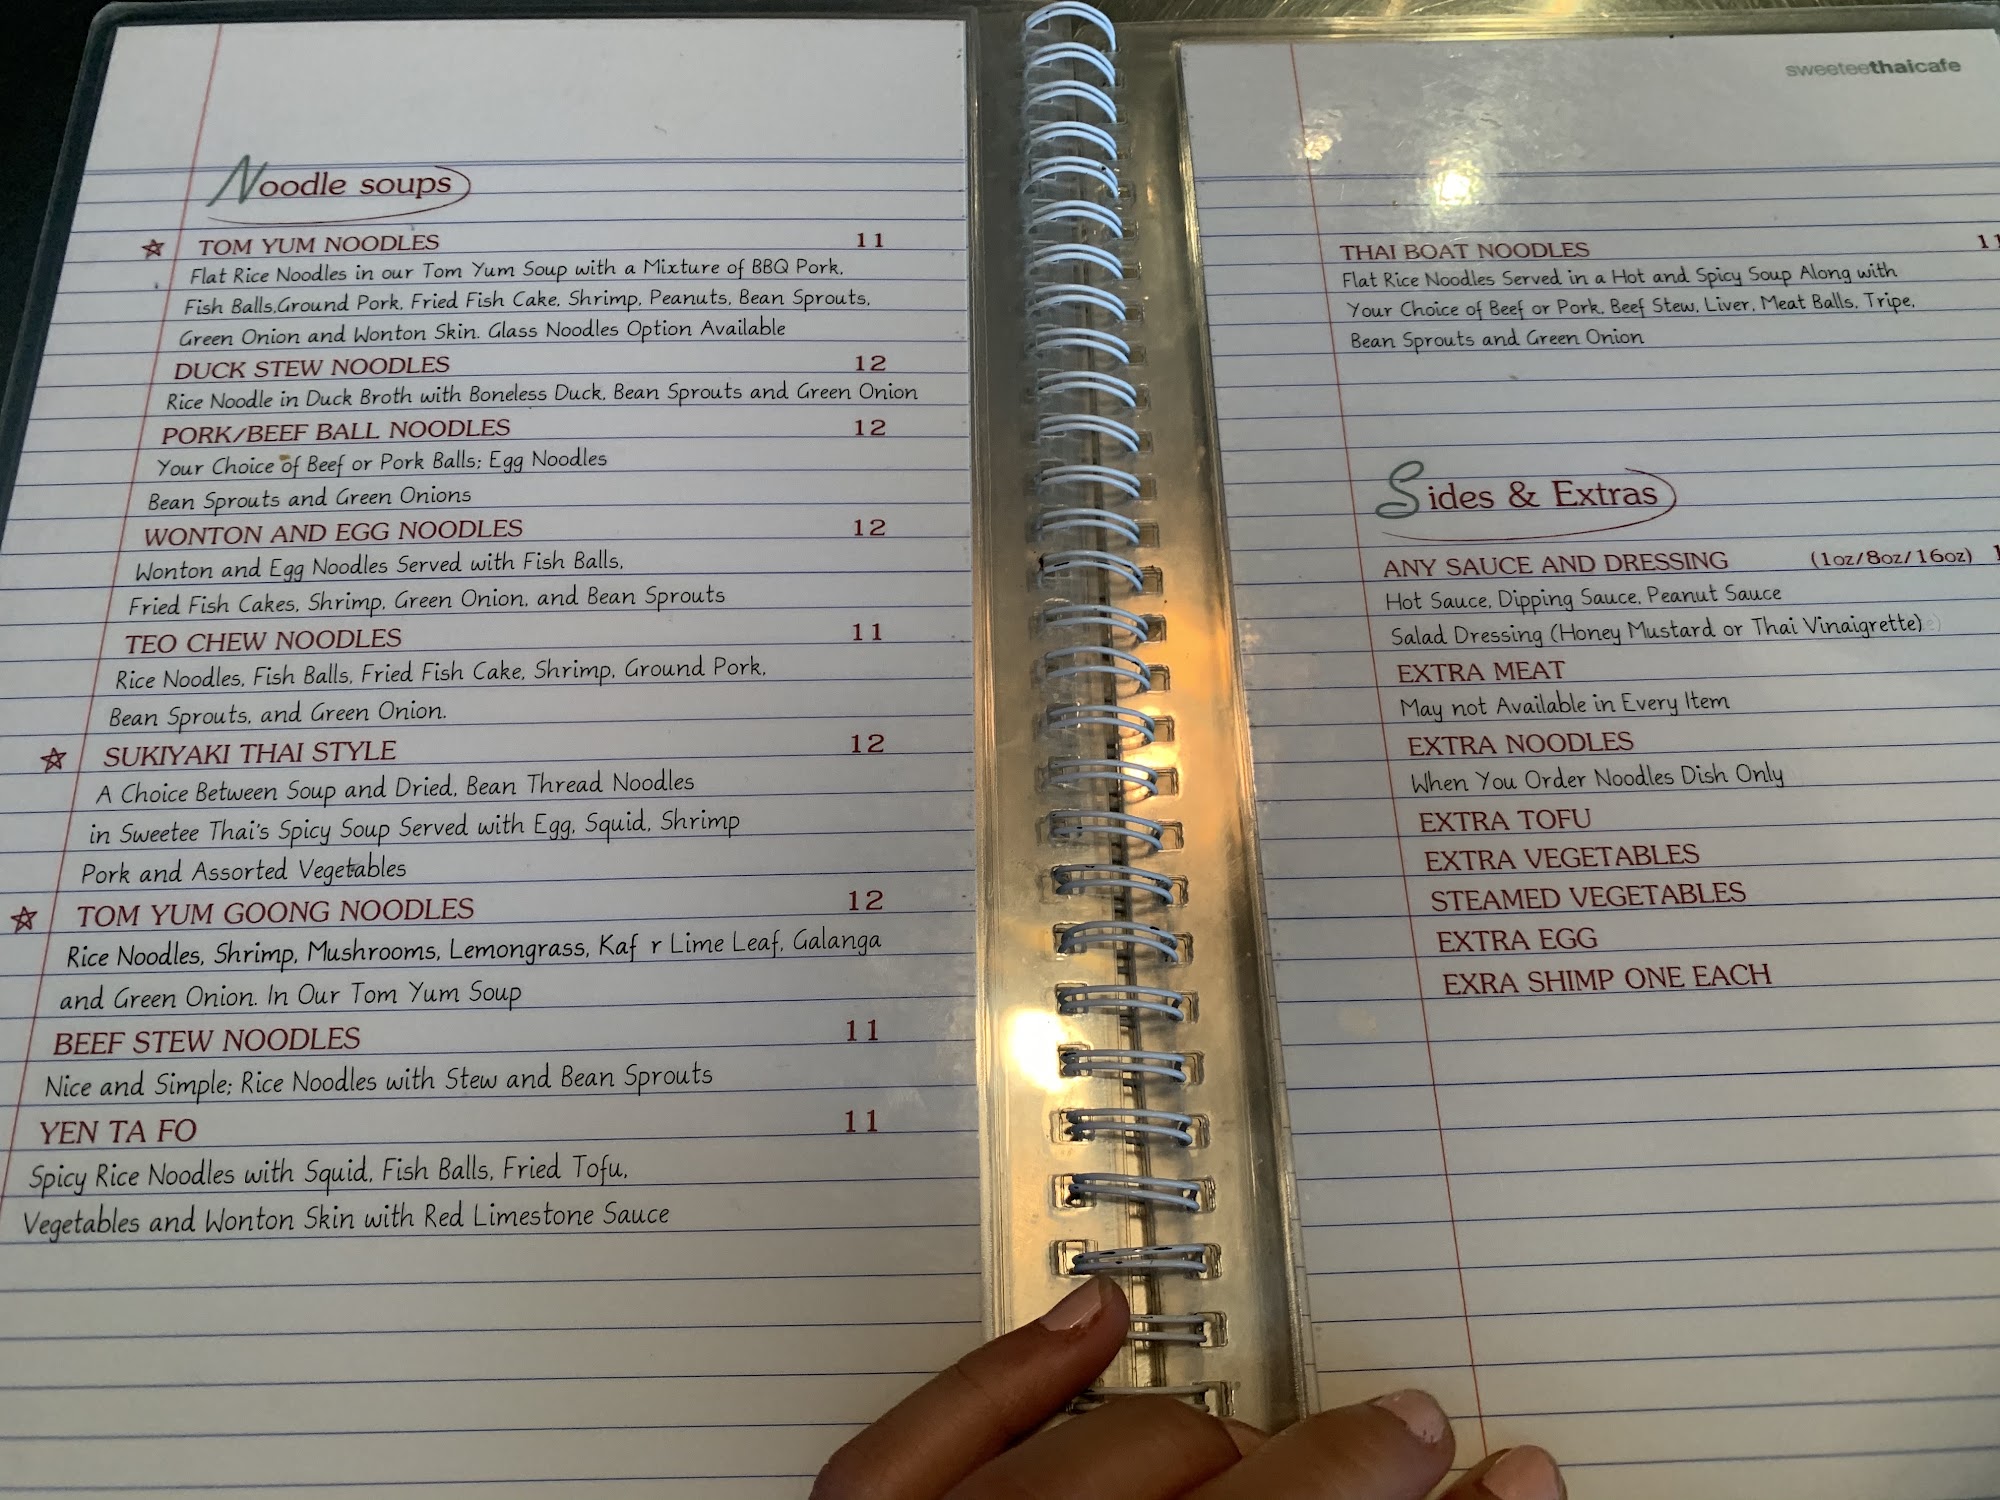 Noodle soups
TOM YUM NOODLES 11
Flat Rice Noodles in our Tom Yum Soup with a Mixture of BBQ Pork,
Fish Balls,Ground Pork, Fried Fish Cake, Shrimp, Peanuts, Bean Sprouts,
Green Onion and Wonton Skin. Glass Noodles Option Available
DUCK STEW NOODLES 12
Rice Noodle in Duck Broth with Boneless Duck, Bean Sprouts and Green Onion
PORK/BEEF BALL NOODLES 12
Your Choice of Beef or Pork Balls; Egg Noodles
Bean Sprouts and Green Onions
WONTON AND EGG NOODLES 12
Wonton and Egg Noodles Served with Fish Balls,
Fried Fish Cakes, Shrimp, Green Onion, and Bean Sprouts
TEO CHEW NOODLES 11
Rice Noodles, Fish Balls, Fried Fish Cake, Shrimp, Ground Pork,
Bean Sprouts, and Green Onion.
SUKIYAKI THAI STYLE 12
A Choice Between Soup and Dried, Bean Thread Noodles
in Sweetee Thai's Spicy Soup Served with Egg, Squid, Shrimp
Pork and Assorted Vegetables
TOM YUM GOONG NOODLES 12
Rice Noodles, Shrimp, Mushrooms, Lemongrass, Kaf r Lime Leaf, Galanga
and Green Onion. In Our Tom Yum Soup
BEEF STEW NOODLES 11
Nice and Simple; Rice Noodles with Stew and Bean Sprouts
YEN TA FO 11
Spicy Rice Noodles with Squid, Fish Balls, Fried Tofu,
Vegetables and Wonton Skin with Red Limestone Sauce
sweeteethaicafe
THAI BOAT NOODLES 11
Flat Rice Noodles Served in a Hot and Spicy Soup Along with
Your Choice of Beef or Pork, Beef Stew, Liver, Meat Balls, Tripe,
Bean Sprouts and Green Onion
Sides & Extras
ANY SAUCE AND DRESSING (1oz/8oz/16oz)
Hot Sauce, Dipping Sauce, Peanut Sauce
Salad Dressing (Honey Mustard or Thai Vinaigrette)
EXTRA MEAT
May not Available in Every Item
EXTRA NOODLES
When You Order Noodles Dish Only
EXTRA TOFU
EXTRA VEGETABLES
STEAMED VEGETABLES
EXTRA EGG
EXRA SHIMP ONE EACH